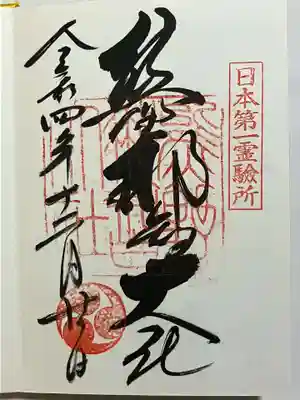 日本第一霊験所
熊野那智大社
令和四年十二月廿日